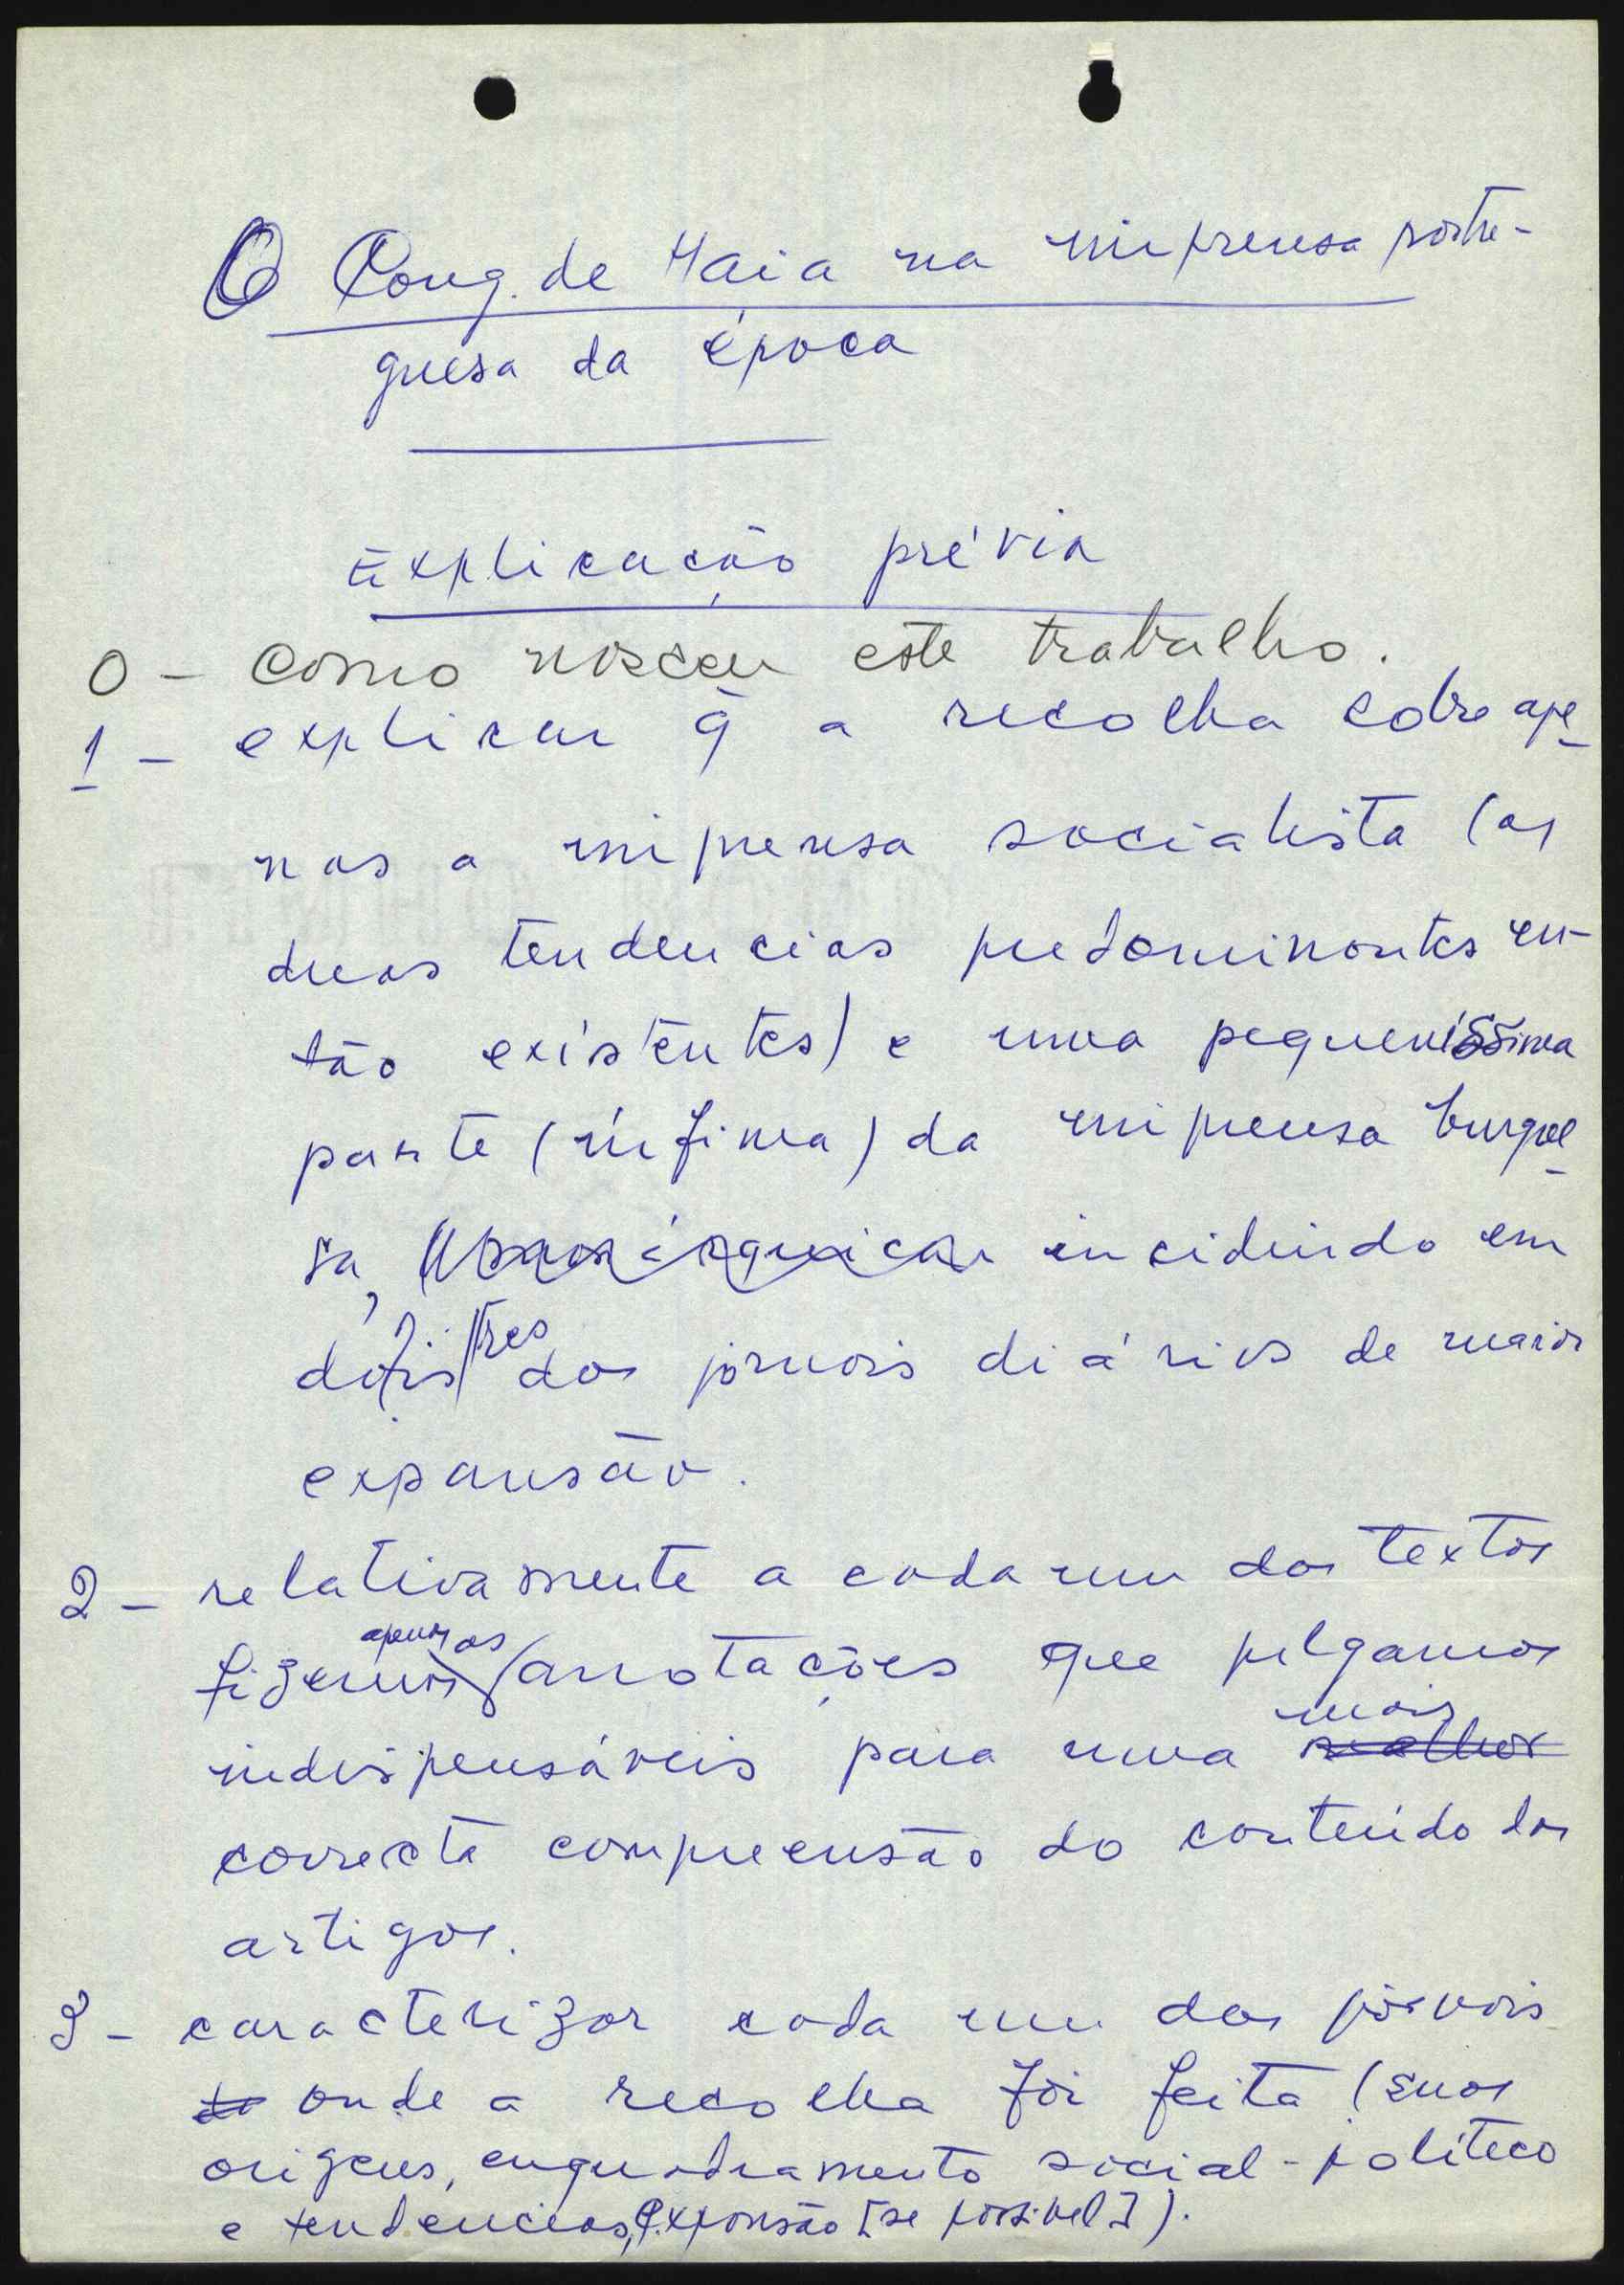 O Cong. de Haia na imprensa portu-
guesa da época
Explicação prévia
0 - Como nasceu este trabalho.
1 - explicar q̃ a recolha cobre ape
nas a imprensa socialista (as
duas tendencias predominantes en-
tão existentes) e uma pequeníssima
parte (ínfima) da imprensa burgue
sa, (monárquica incidindo em
dois três dos jornais diários de maior
expansão.
2 - relativamente a cada um dos textos
fizemos apenas as anotações que julgamos
indispensáveis para uma melhor mais
correcta compreensão do conteúdo dos
artigos.
3 - caracterizar cada um dos jornais
onde a recolha foi feita (suas
origens, enquadramento social-político
e tendencias, expansão [se possivel]).